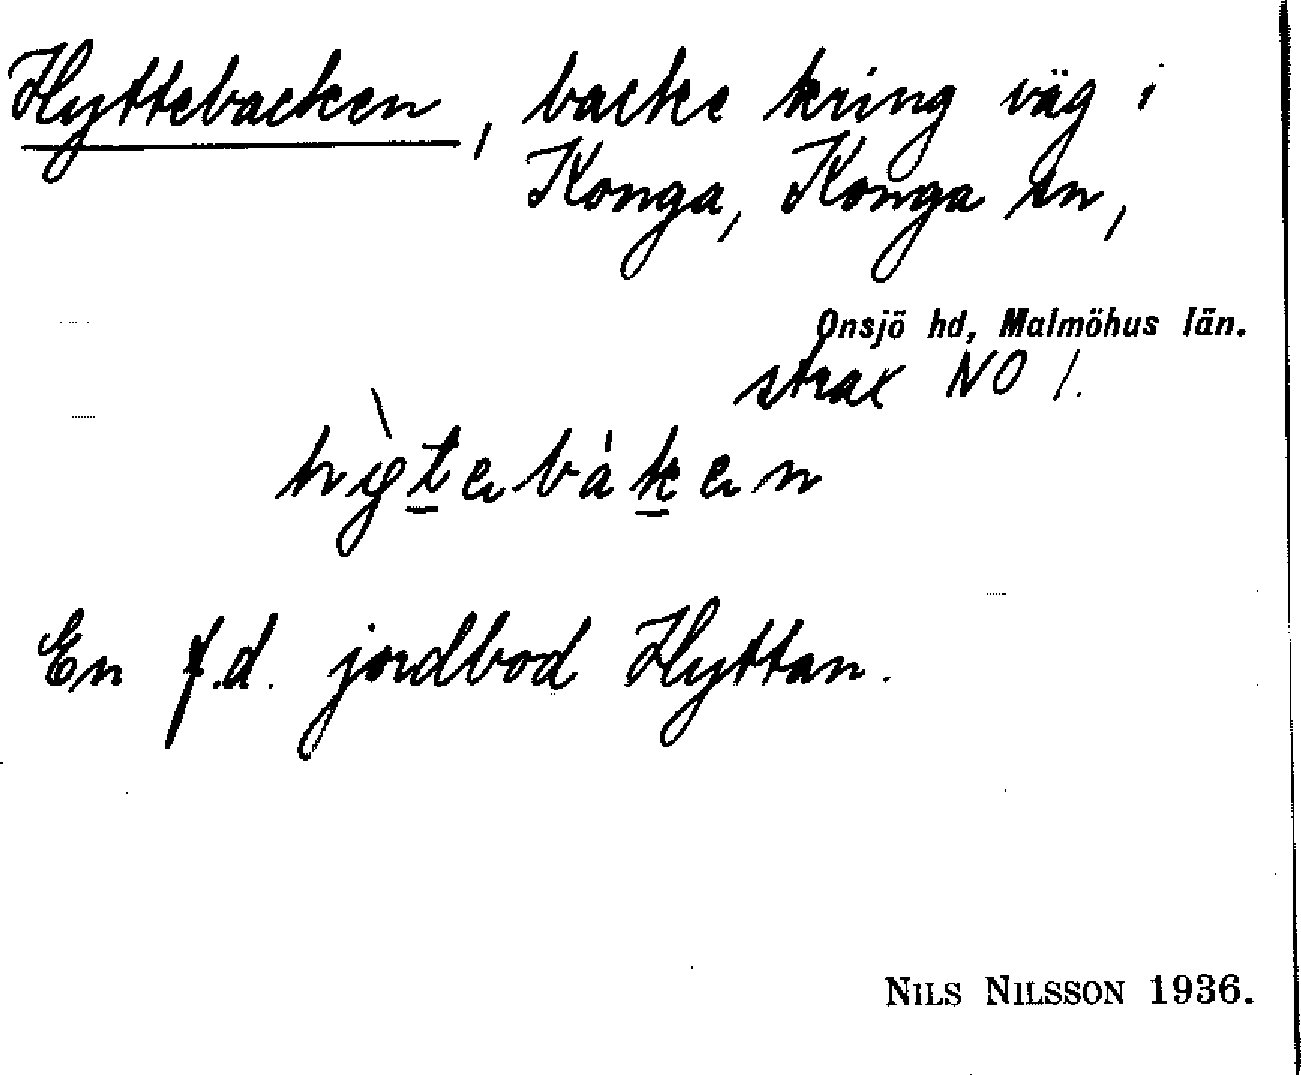 Hyttebacken, backe kring väg i
Konga, Konga sn,
Onsjö hd, Malmöhus län.
strax NO 1.
hỳtebáken
En f.d. jordbod Hyttan.
NILS NILSSON 1936.